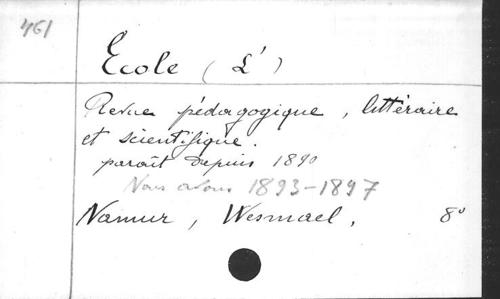 461
Ecole (L')
Revue pédagogique, littéraire
et scientifique.
paraît depuis 1890
Nous avons 1893-1897
Namur, Wesmael, 8°